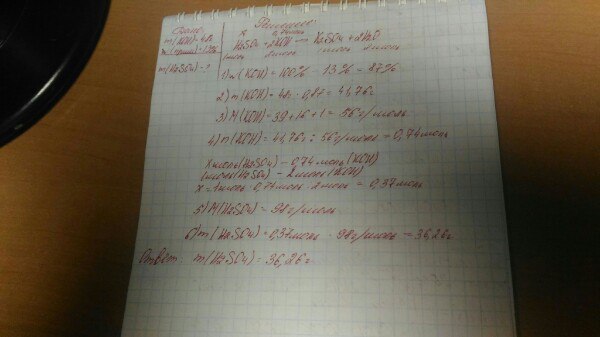 Дано:
m(KOH)=48г
w(прим)=13%
m(H2SO4)-?
Решение:
x 0,74моль
H2SO4+2KOH → K2SO4+2H2O
1моль 2моль 1моль 2моль
1) w(KOH)=100% - 13% = 87%
2) m(KOH)=48г · 0,87 = 41,76г
3) M(KOH)=39+16+1=56г/моль
4) n(KOH)=41,76г : 56г/моль = 0,74моль
x моль(H2SO4) - 0,74 моль(KOH)
1моль(H2SO4) - 2моль(KOH)
x = 1моль · 0,74моль : 2моль = 0,37моль
5) M(H2SO4) = 98г/моль
6) m(H2SO4)=0,37моль · 98г/моль = 36,26г
Ответ: m(H2SO4) = 36,26г.